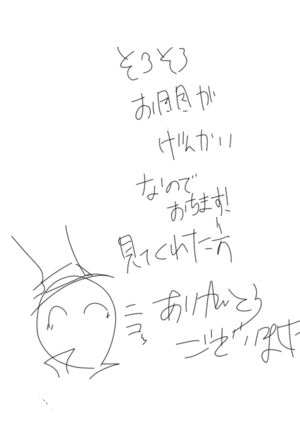 そろそろ
お目目が
げんかい
なので
おちます!
見てくれた方
ニコッ
ありがとう
ございました